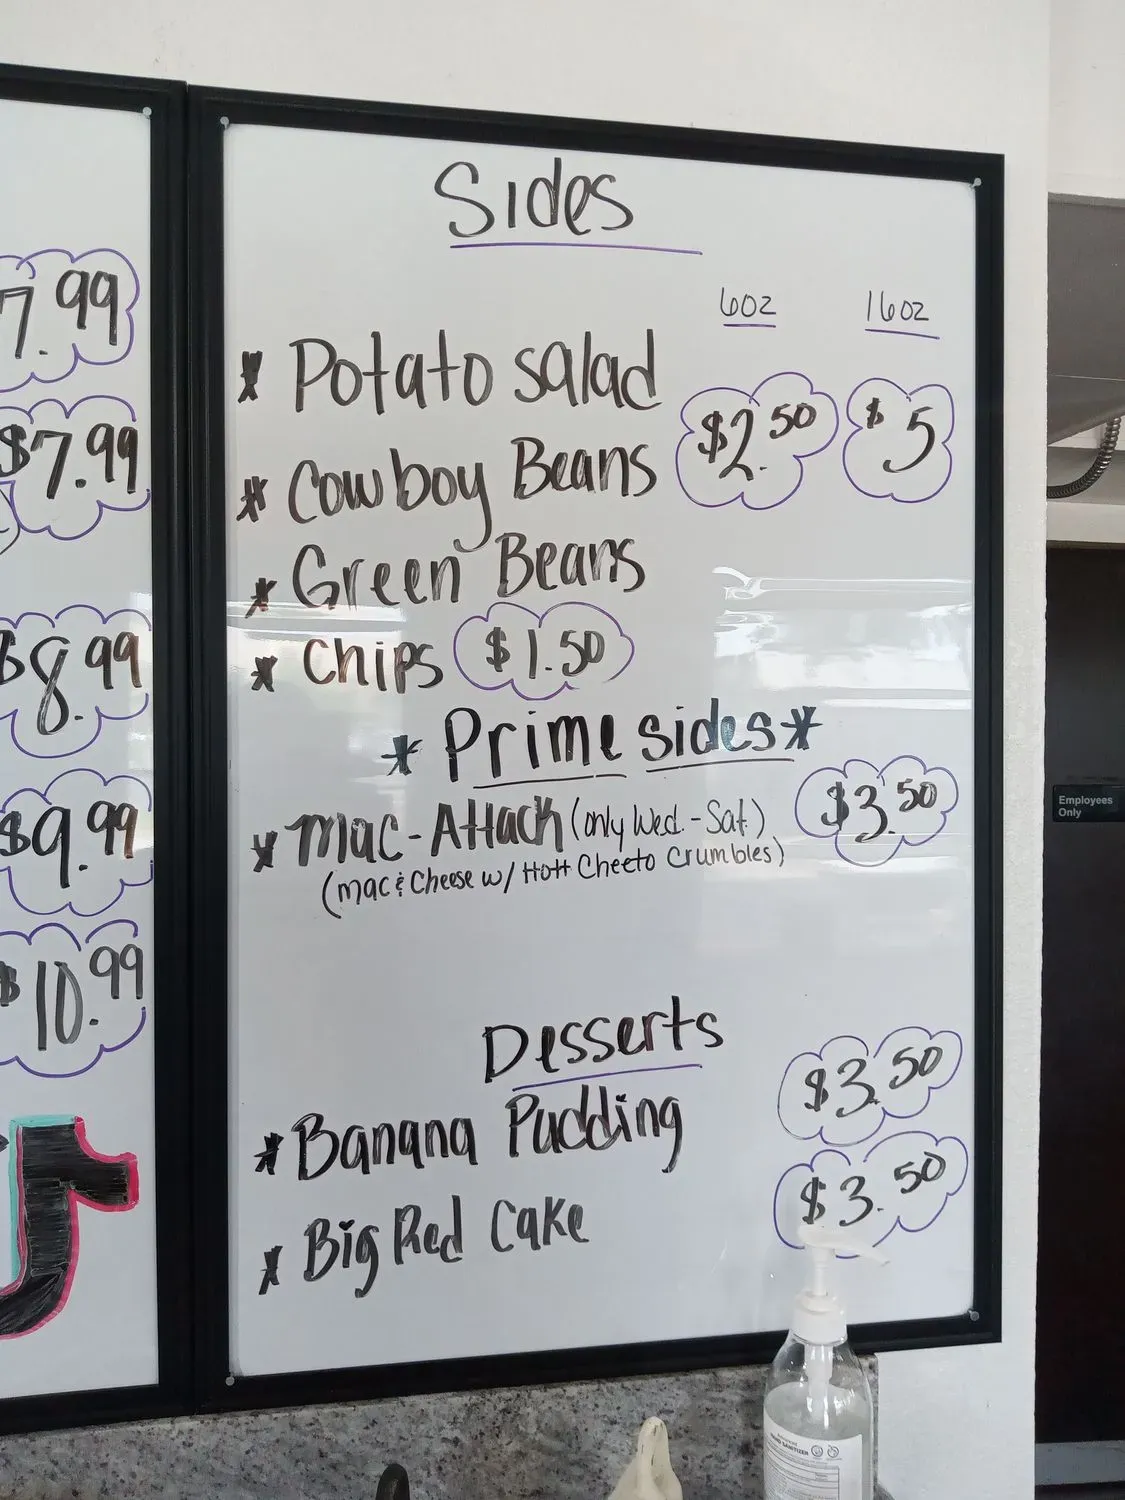 Sides
6oz 16oz
* Potato salad
* Cowboy Beans $2.50 $5
* Green Beans
* Chips $1.50
* Prime sides *
* Mac-Attack (only Wed.-Sat.) $3.50
(mac & Cheese w/ Hott Cheeto Crumbles)
Desserts
* Banana Pudding $3.50
* Big Red Cake $3.50
7.99
$7.99
$8.99
$9.99
$10.99
Employees
Only
Advanced
HAND SANITIZER